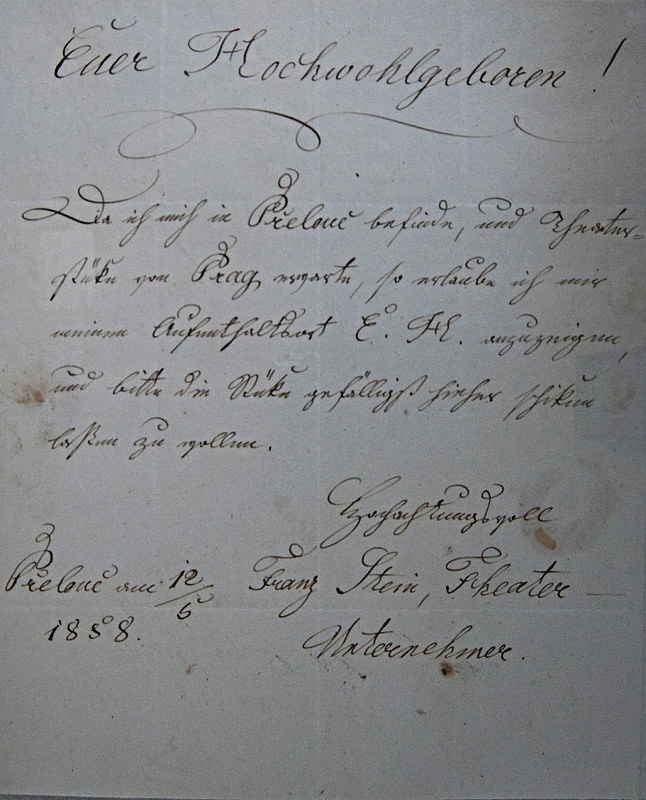 Euer Hochwohlgeboren!
Da ich mich in Přelouč befinde, und Theater=
stüke von Prag erwarte, so erlaube ich mir
meinen Aufenthaltsort E. H. anzuzeigen,
und bitte die Stüke gefälligst hieher schiken
laßen zu wollen.
Hochachtungsvoll
Přelouč am 12/5 Franz Stein, Theater—
1858. Unternehmer.